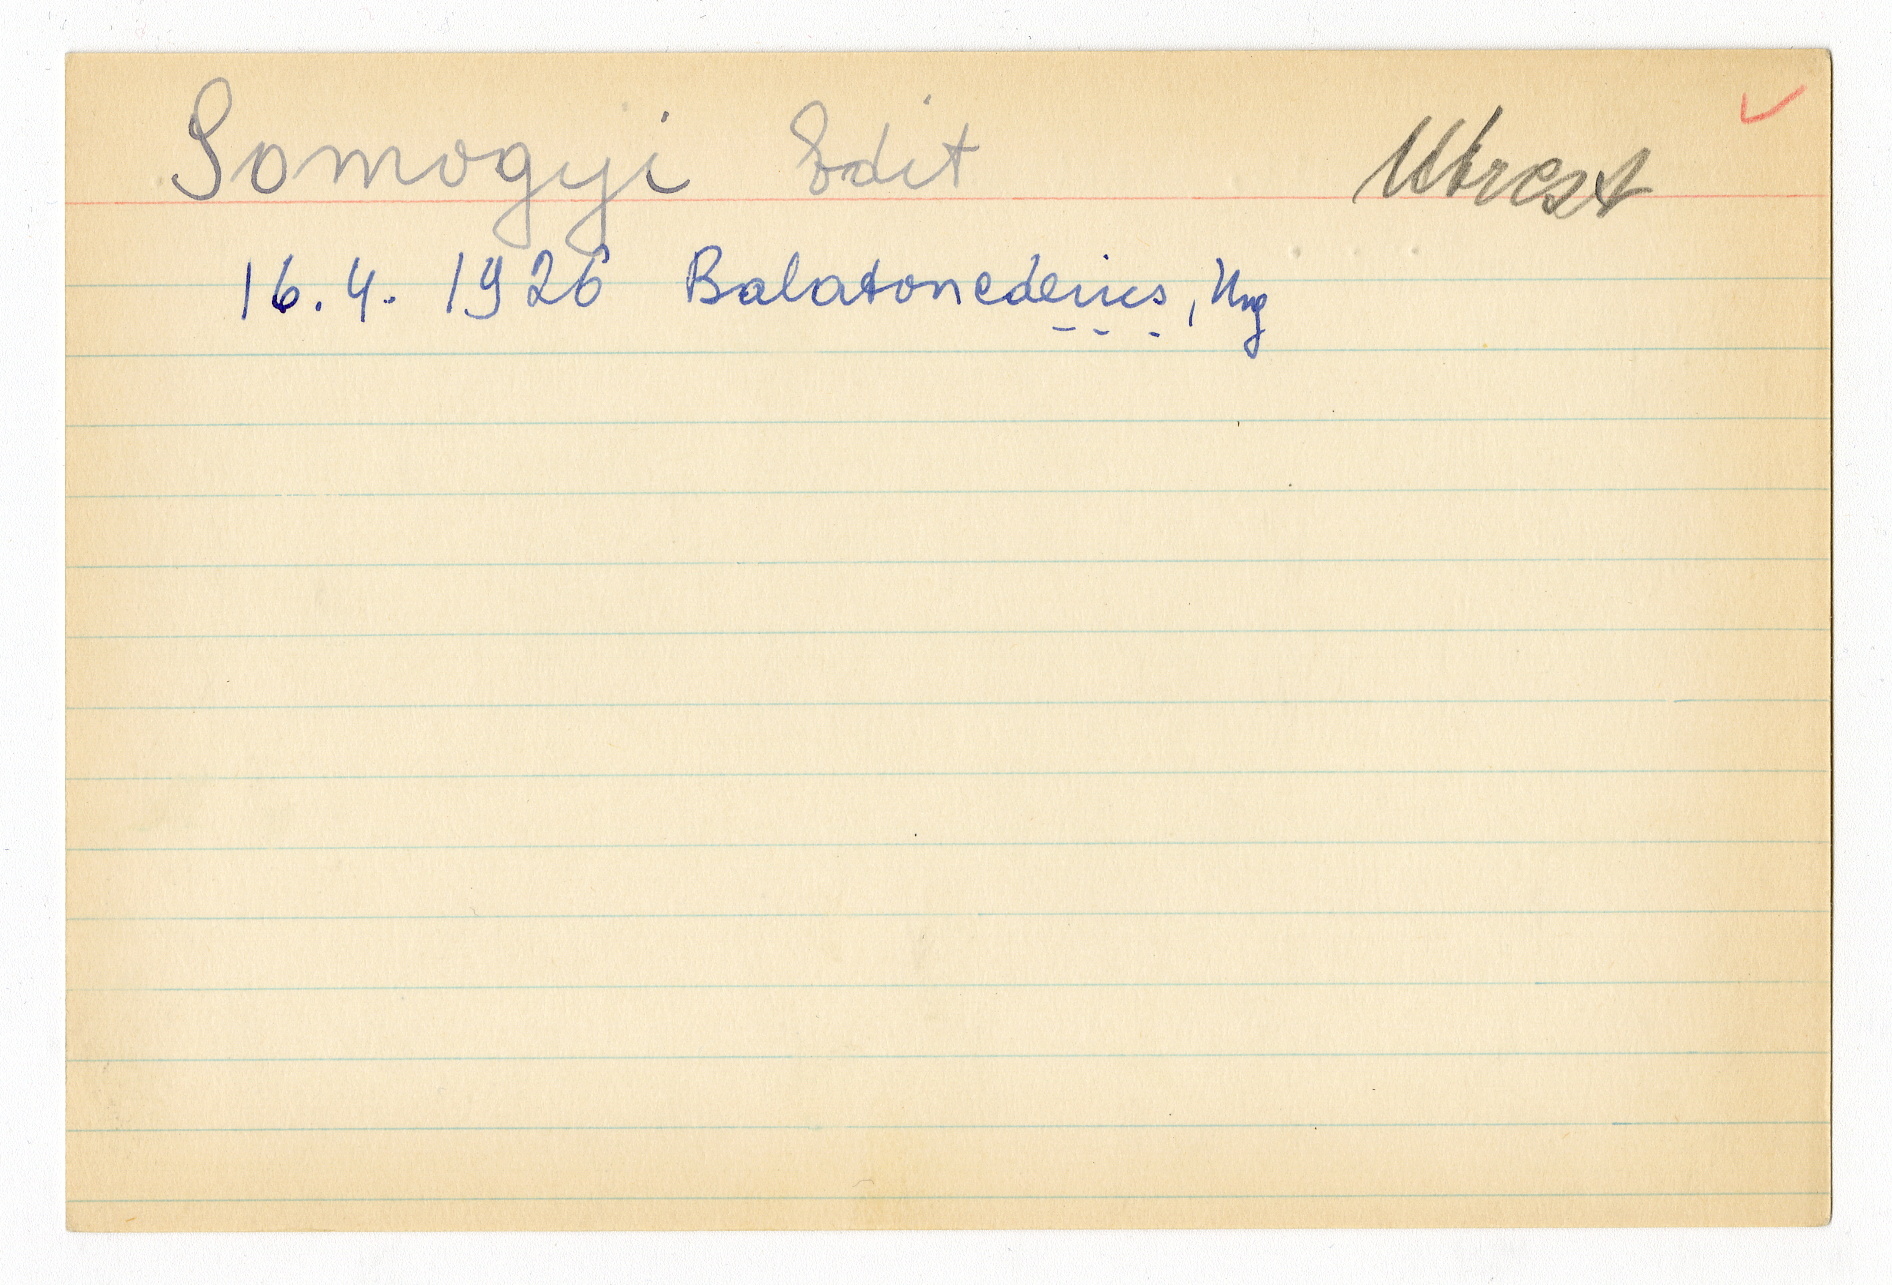 Somogyi Edit Utrcszt
16.4. 1926 Balatonederics, Ung